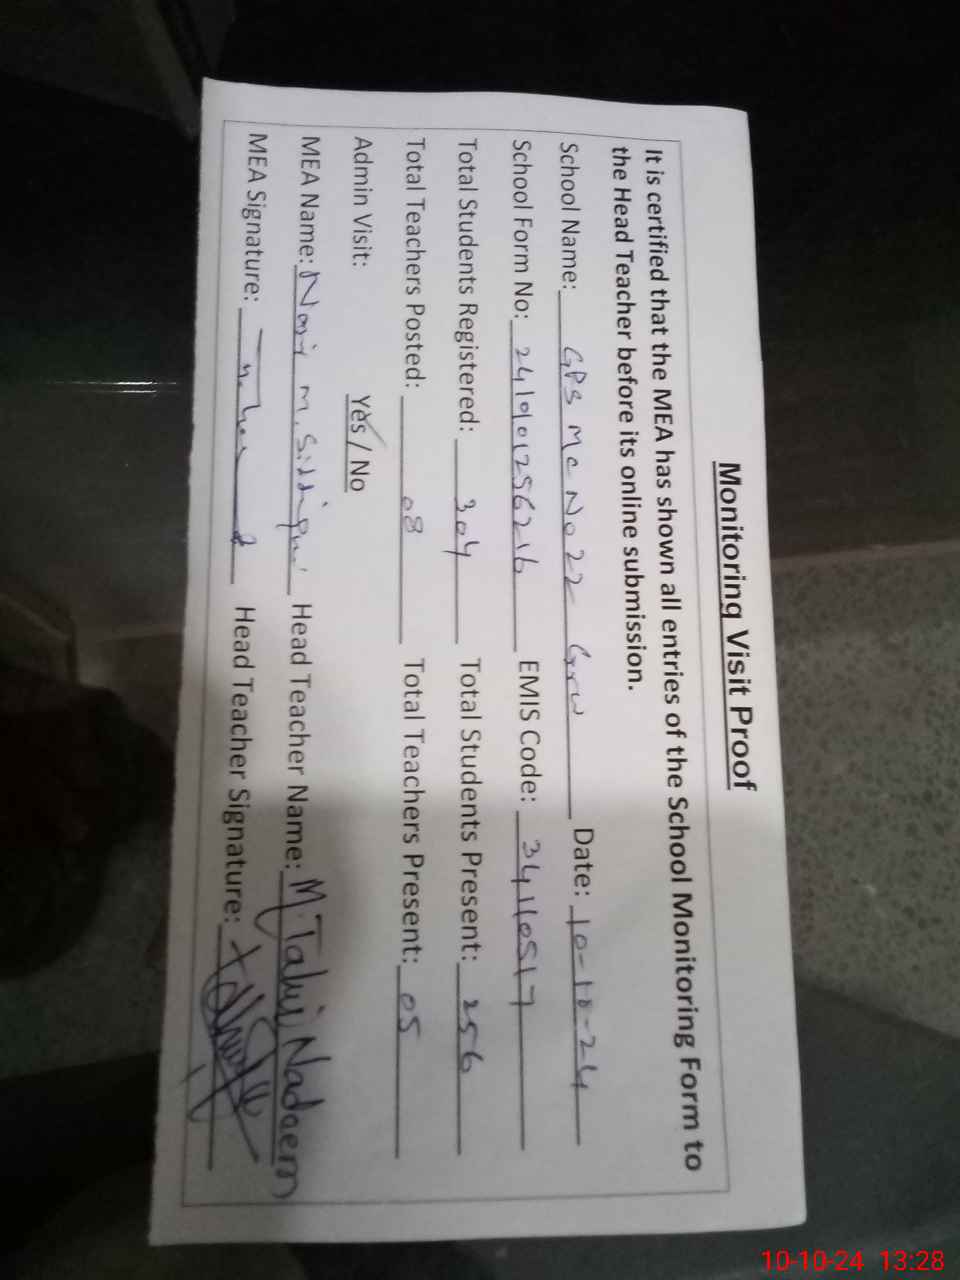 Monitoring Visit Proof
It is certified that the MEA has shown all entries of the School Monitoring Form to
the Head Teacher before its online submission.
School Name: GPS Mc No 22 Grw Date: 10-10-24
School Form No: EMIS Code: 34110517
Total Students Registered: 304 Total Students Present: 256
Total Teachers Posted: 08 Total Teachers Present: 05
Admin Visit: Yes / No
MEA Name: M. Siddiqui Head Teacher Name: M. Nadaem
MEA Signature: Head Teacher Signature:
10-10-24 13:28